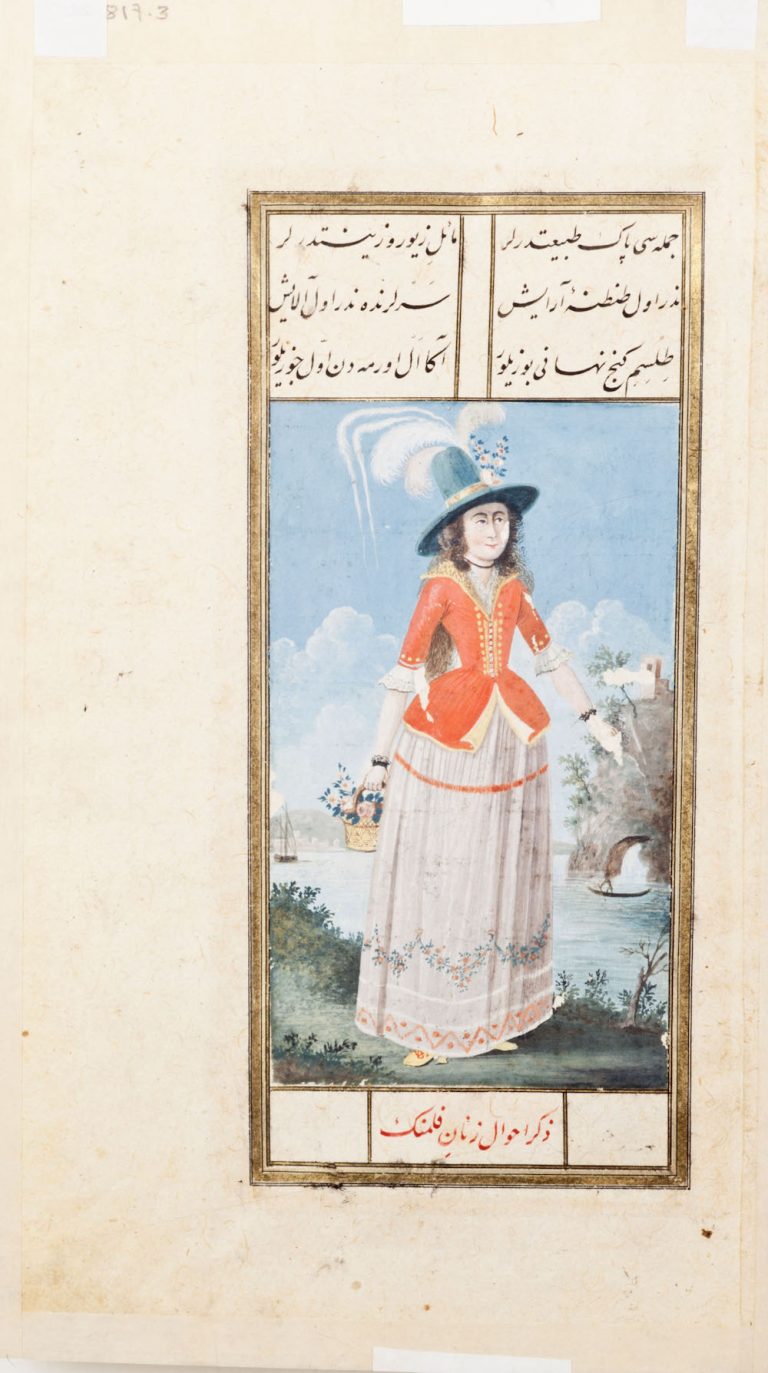 817.3
جمله سی پاک طبیعتدرلر مائل زیور و زینتدرلر
ندر اول طنطنهٔ آرایش سرلرنده ندر اول آلایش
طِلسِمِ کنج نهانی بوزیلور آکا ال اورمه دن اول جوزیلور
ذکر احوال زنانِ فلمنک